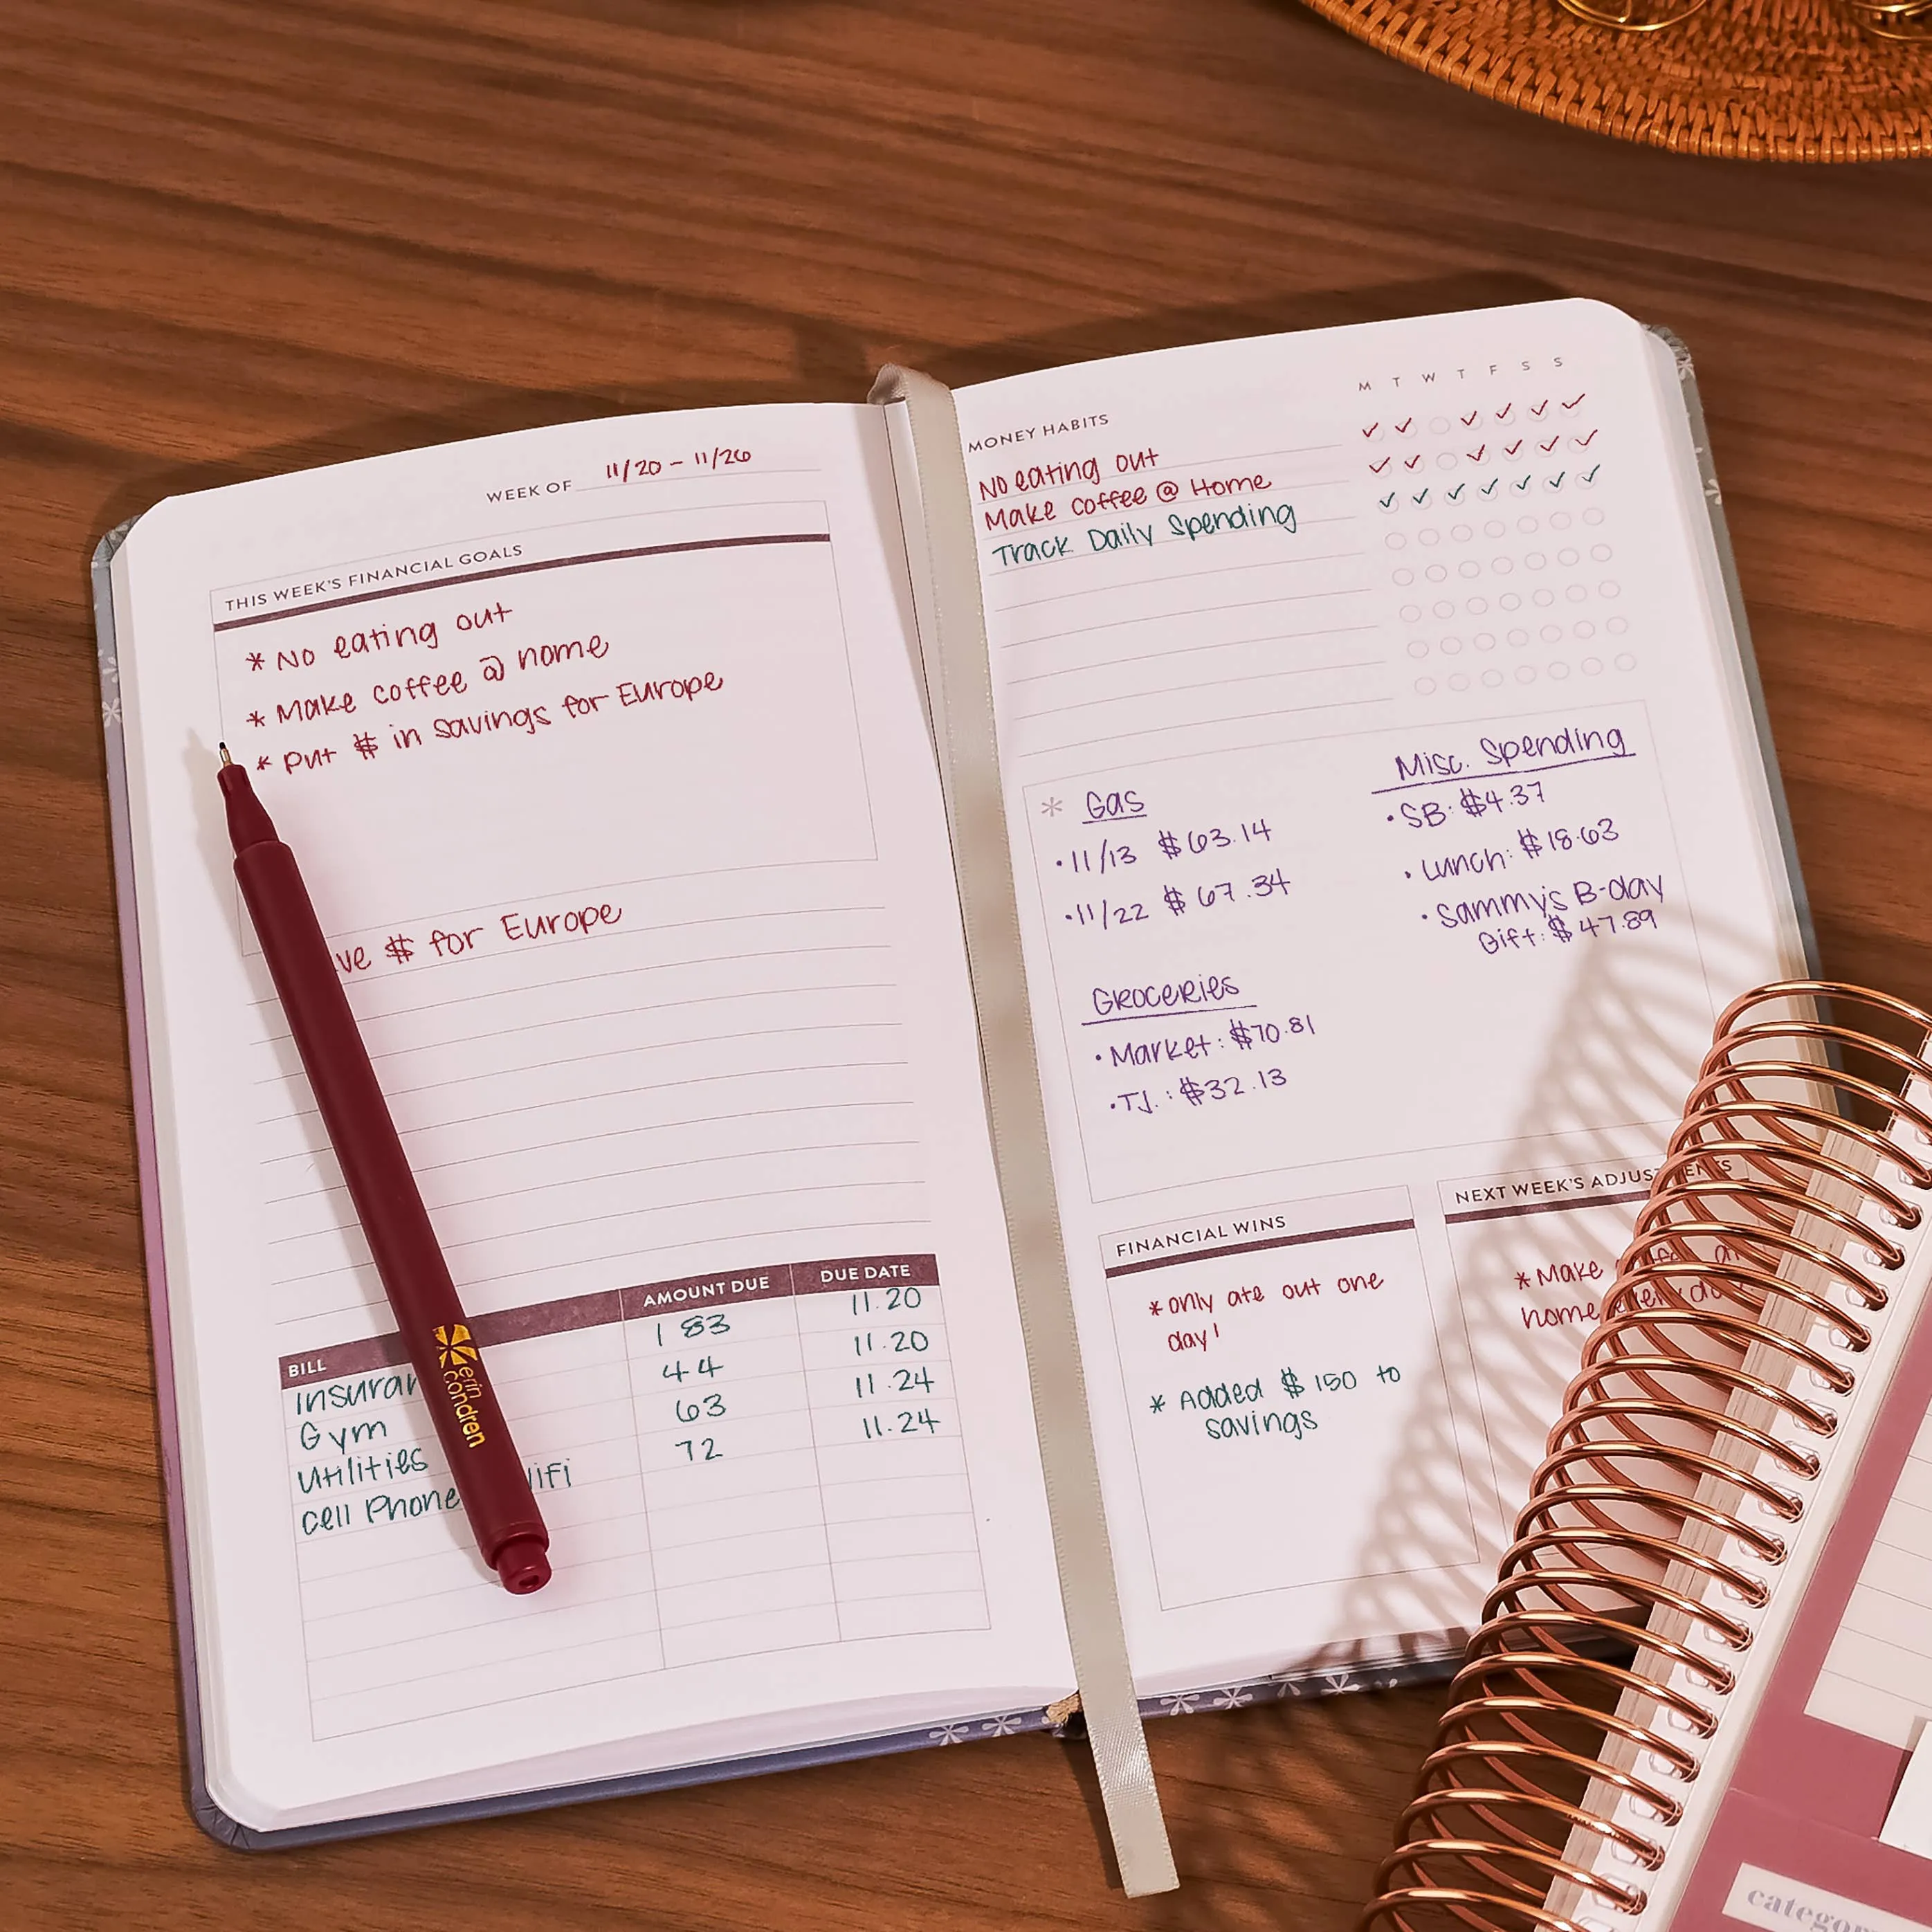 WEEK OF 11/20 - 11/26
THIS WEEK'S FINANCIAL GOALS
* No eating out
* Make coffee @ home
* Put $ in savings for Europe
$ for Europe
BILL AMOUNT DUE DUE DATE
183 11.20
Gym 44 11.20
Utilities 63 11.24
Cell Phone 72 11.24
erin
condren
M T W T F S S
MONEY HABITS
No eating out
Make coffee @ Home
Track Daily Spending
* Gas
• 11/13 $63.14
• 11/22 $67.34
Groceries
• Market: $70.81
• TJ.: $32.13
Misc. Spending
• SB: $4.37
• Lunch: $18.63
• Sammy's B-day
Gift: $47.89
FINANCIAL WINS
* only ate out one
day!
* Added $150 to
savings
NEXT WEEK'S ADJUSTMENTS
* Make
home